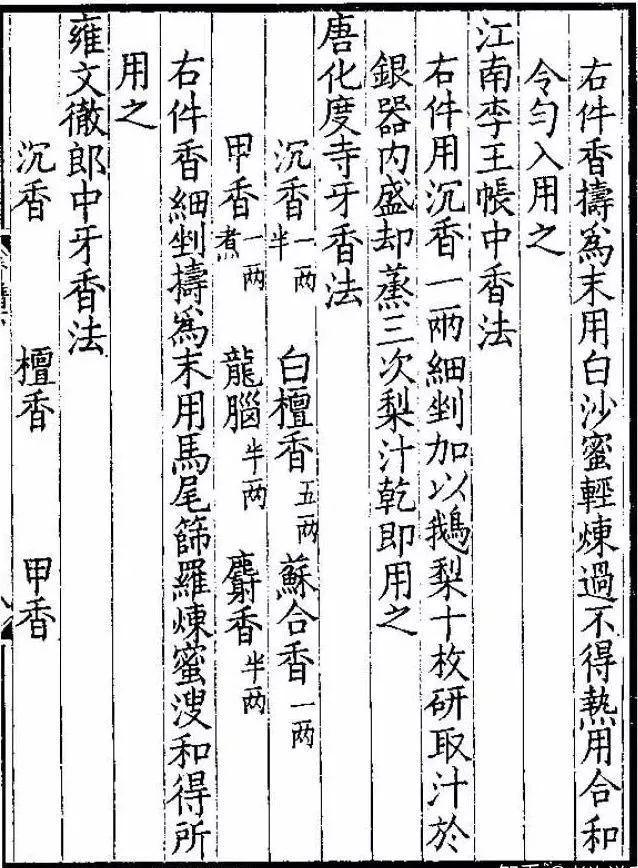 右件香擣爲末用白沙蜜輕煉過不得熱用合和
令勻入用之
江南李王帳中香法
右件用沉香一兩細剉加以鵝梨十枚研取汁於
銀器内盛却蒸三次梨汁乾即用之
唐化度寺牙香法
沉香一两半 白檀香五两 蘇合香一两
甲香一两煮 龍腦半两 麝香半两
右件香細剉擣爲末用馬尾篩羅煉蜜溲和得所
用之
雍文徹郎中牙香法
沉香 檀香 甲香